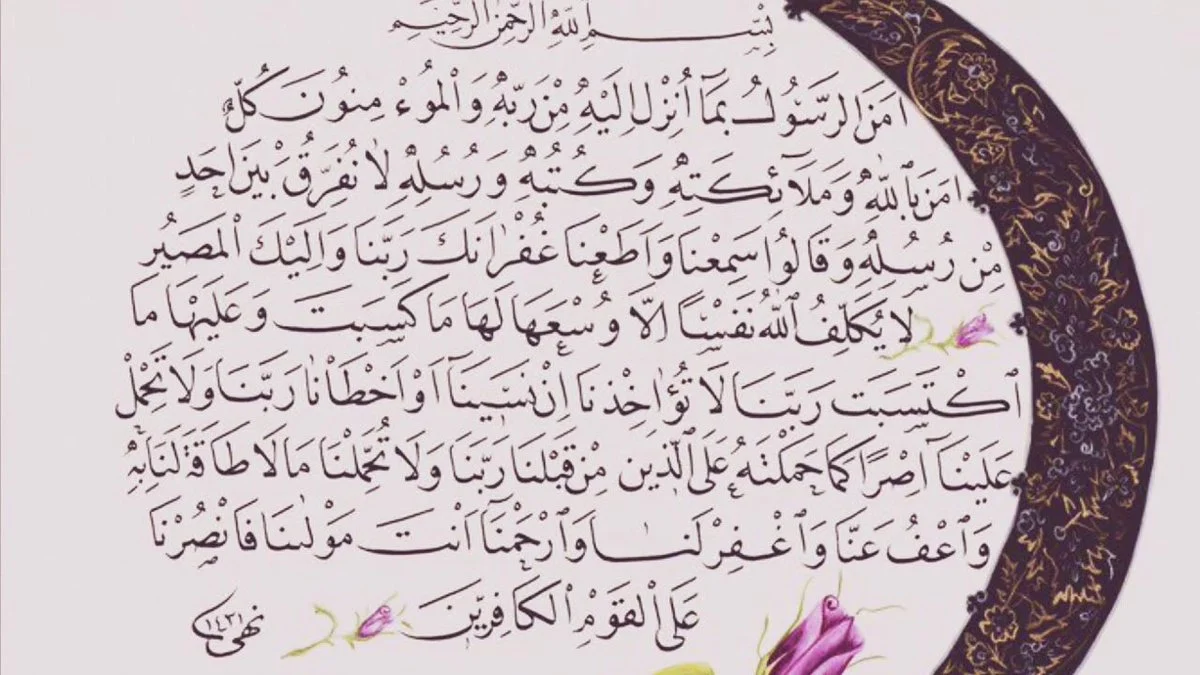 بِسْمِ اللهِ الرَّحْمٰنِ الرَّحِيْمِ
اٰمَنَ الرَّسُوْلُ بِمَآ اُنْزِلَ اِلَيْهِ مِنْ رَبِّهٖ وَالْمُوءْمِنُوْنَ كُلٌّ
اٰمَنَ بِاللهِ وَمَلَآئِكَتِهٖ وَكُتُبِهٖ وَرُسُلِهٖ لَا نُفَرِّقُ بَيْنَ اَحَدٍ
مِّنْ رُسُلِهٖ وَقَالُوا سَمِعْنَا وَاَطَعْنَا غُفْرَانَكَ رَبَّنَا وَاِلَيْكَ الْمَصِيْرُ
لَا يُكَلِّفُ اللهُ نَفْسًا اِلَّا وُسْعَهَا لَهَا مَا كَسَبَتْ وَعَلَيْهَا مَا
اكْتَسَبَتْ رَبَّنَا لَا تُؤَاخِذْنَا اِنْ نَسِيْنَآ اَوْ اَخْطَأْنَا رَبَّنَا وَلَا تَحْمِلْ
عَلَيْنَآ اِصْرًا كَمَا حَمَلْتَهٗ عَلَى الَّذِيْنَ مِنْ قَبْلِنَا رَبَّنَا وَلَا تُحَمِّلْنَا مَا لَا طَاقَةَ لَنَا بِهٖ
وَاعْفُ عَنَّا وَاغْفِرْ لَنَا وَارْحَمْنَآ اَنْتَ مَوْلٰىنَا فَانْصُرْنَا
عَلَى الْقَوْمِ الْكَافِرِيْنَ
١٤٣١